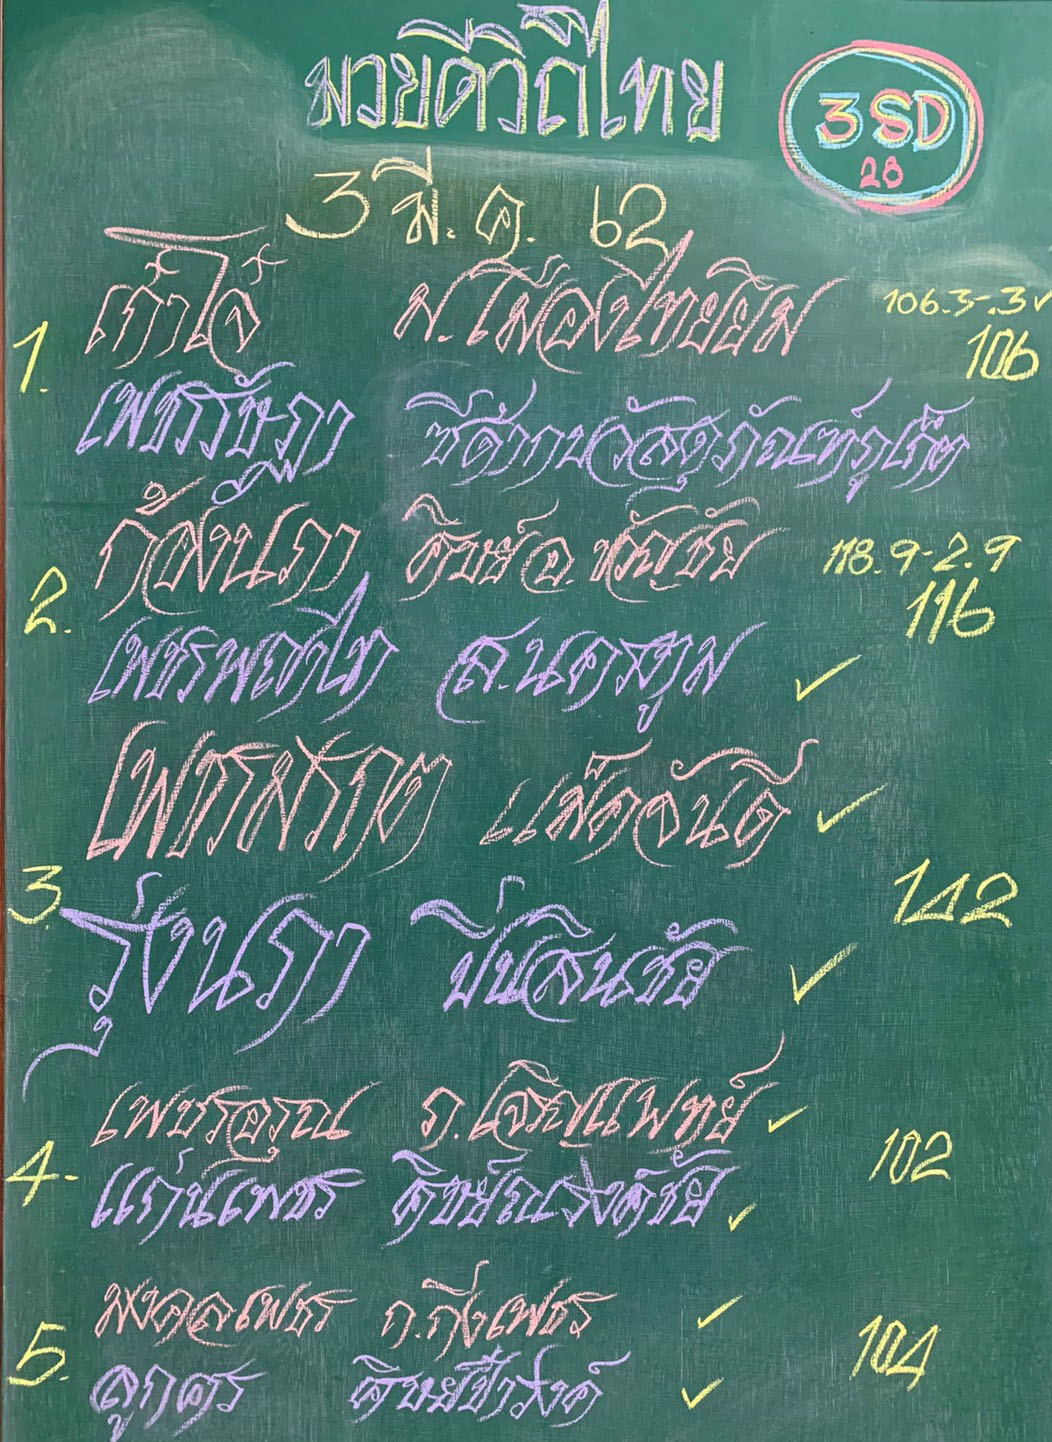 มวยดีวิถีไทย
3SD
28
3 มี.ค. 62
1.
เก้าโจ้ ม.เมืองไทยยิม 106.3-.3✓
106
เพชรรัษฎา ซีดำกบวัสดุภัณฑ์ภูเก็ต
2.
ก้องนภา ศิษย์ อ.ขวัญชัย 118.9-2.9
116
เพชรพญาไท ส.นครทุม ✓
3.
เพชรมราช แม็คจันดี ✓
142
รุ่งนภา ปิ่นสินชัย ✓
4.
เพชรอรุณ ภ.เจริญแพทย์ ✓
102
แก่นเพชร ศิษย์ณรงค์ชัย ✓
5.
มงคลเพชร ก.กิ่งเพชร ✓
104
ลูกศร ✓